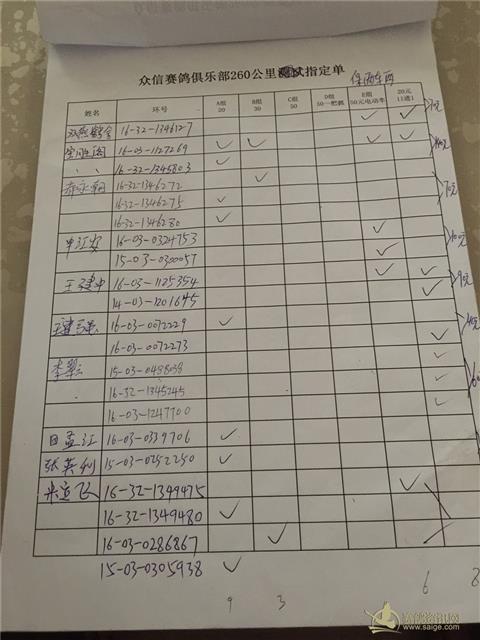 众信赛鸽俱乐部260公里测试指定单
姓名 环号 A组 20 B组 30 C组 50 D组 50一把抓 E组 50元电动车 20元 11进1
16-32-1346127
16-03-1127269
16-32-1345803
16-32-1346272
16-32-1346275
16-32-1346280
申江安 16-03-0324753
15-03-0300057
王建中 16-03-1125354
14-03-1201645
16-03-0072229
16-03-0072273
15-03-0488038
16-32-1345245
16-03-1247700
田孟江 16-03-0339706
张英利 15-03-0252250
16-32-1349475
16-32-1349480
16-03-0286867
15-03-0305938
9 3 6 8
www.saige.com